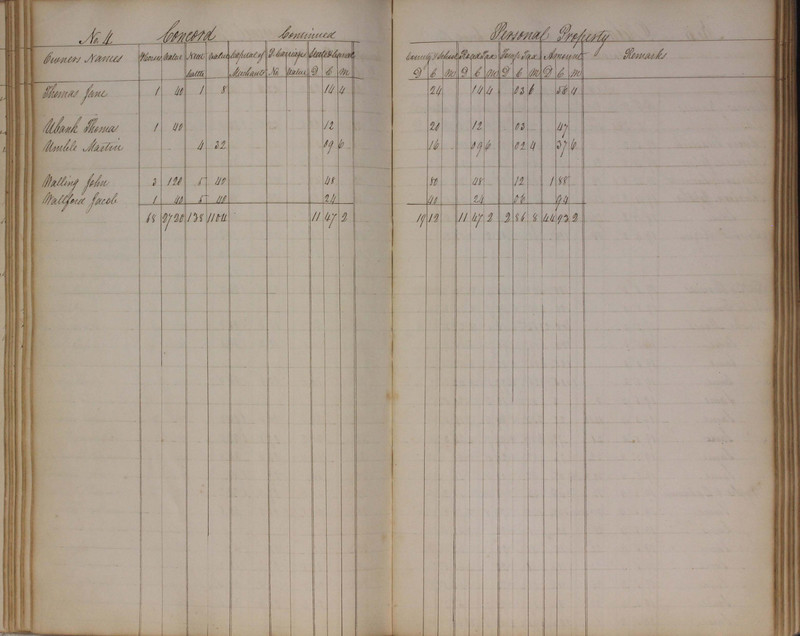 No 4 Concord Continued Personal Property
Owners Names Horses Value Neat Cattle Value Capital of Merchants P. Carriages No Value State & Canal D C M County & School D C M Road Tax D C M Twsp Tax D C M Amount D C M Remarks
Thomas Jane 1 40 1 8 14 4 24 14 4 03 6 56 4
Ubank Thomas 1 40 12 20 12 03 47
Umble Martin 4 32 09 6 16 09 6 02 4 37 6
Walling John 3 120 5 40 48 80 48 12 1 88
Wallford Jacob 1 40 5 40 24 40 24 06 94
68 2720 138 1104 11 47 2 19 12 11 47 2 2 86 8 44 93 2